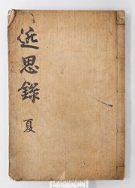 近思錄
夏